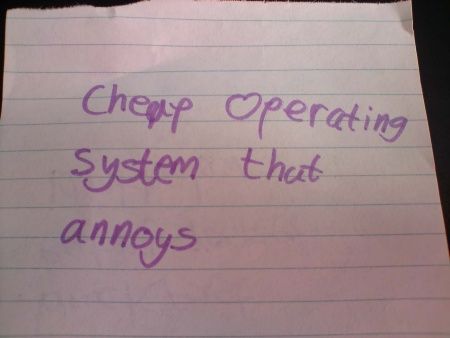 Cheap Operating
System that
annoys